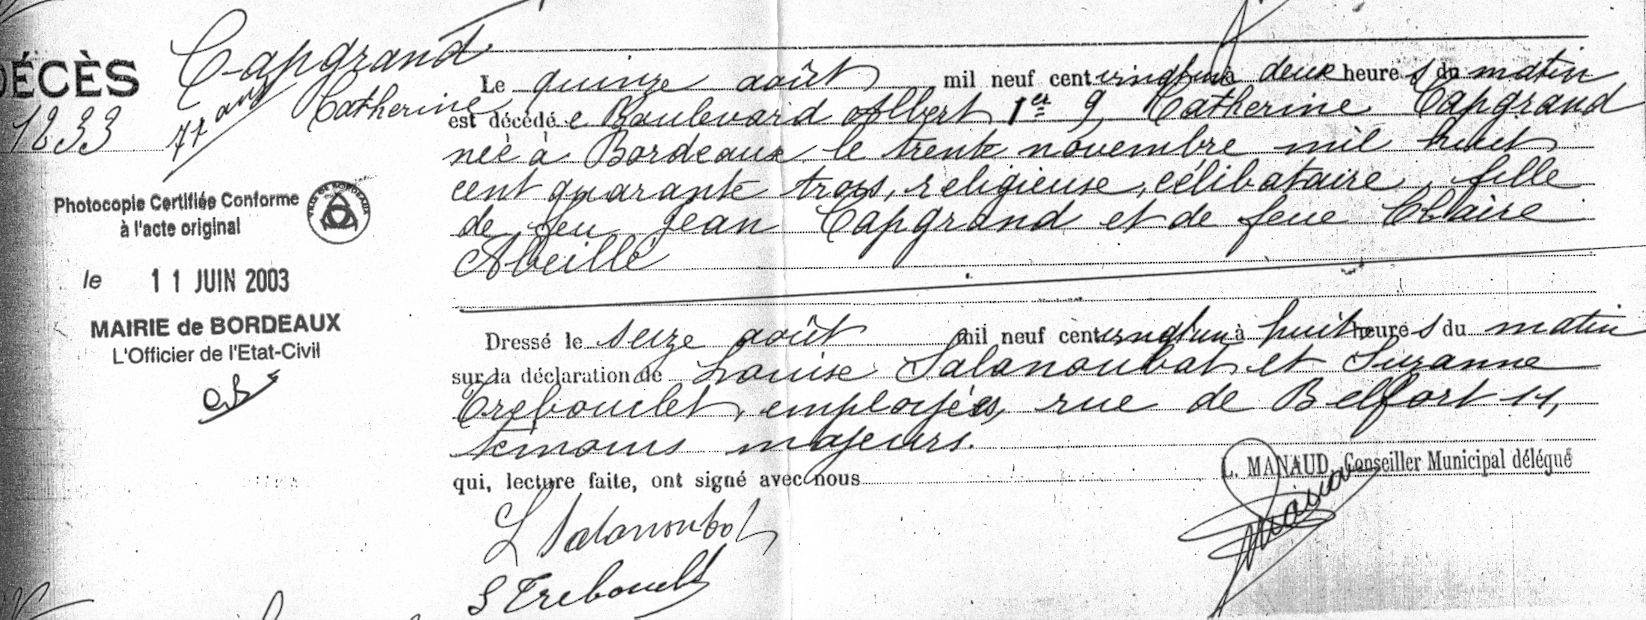 DÉCÈS
1233
Capgrand
Catherine
77 ans
Photocopie Certifiée Conforme
à l'acte original
VILLE DE BORDEAUX
le 11 JUIN 2003
MAIRIE de BORDEAUX
L'Officier de l'Etat-Civil
Le quinze août mil neuf cent vingt un à deux heures du matin
est décédée Boulevard Albert 1er 9, Catherine Capgrand
née à Bordeaux le trente novembre mil huit
cent quarante trois, religieuse, célibataire, fille
de feu Jean Capgrand et de feue Claire
Abeille
Dressé le seize août mil neuf cent vingt un à huit heures du matin
sur la déclaration de Louise Salanoubat et Suzanne
Trebouclet, employées, rue de Belfort 11,
témoins majeurs.
qui, lecture faite, ont signé avec nous
L. MANAUD, Conseiller Municipal délégué
L Salanoubat
S Trebouclet